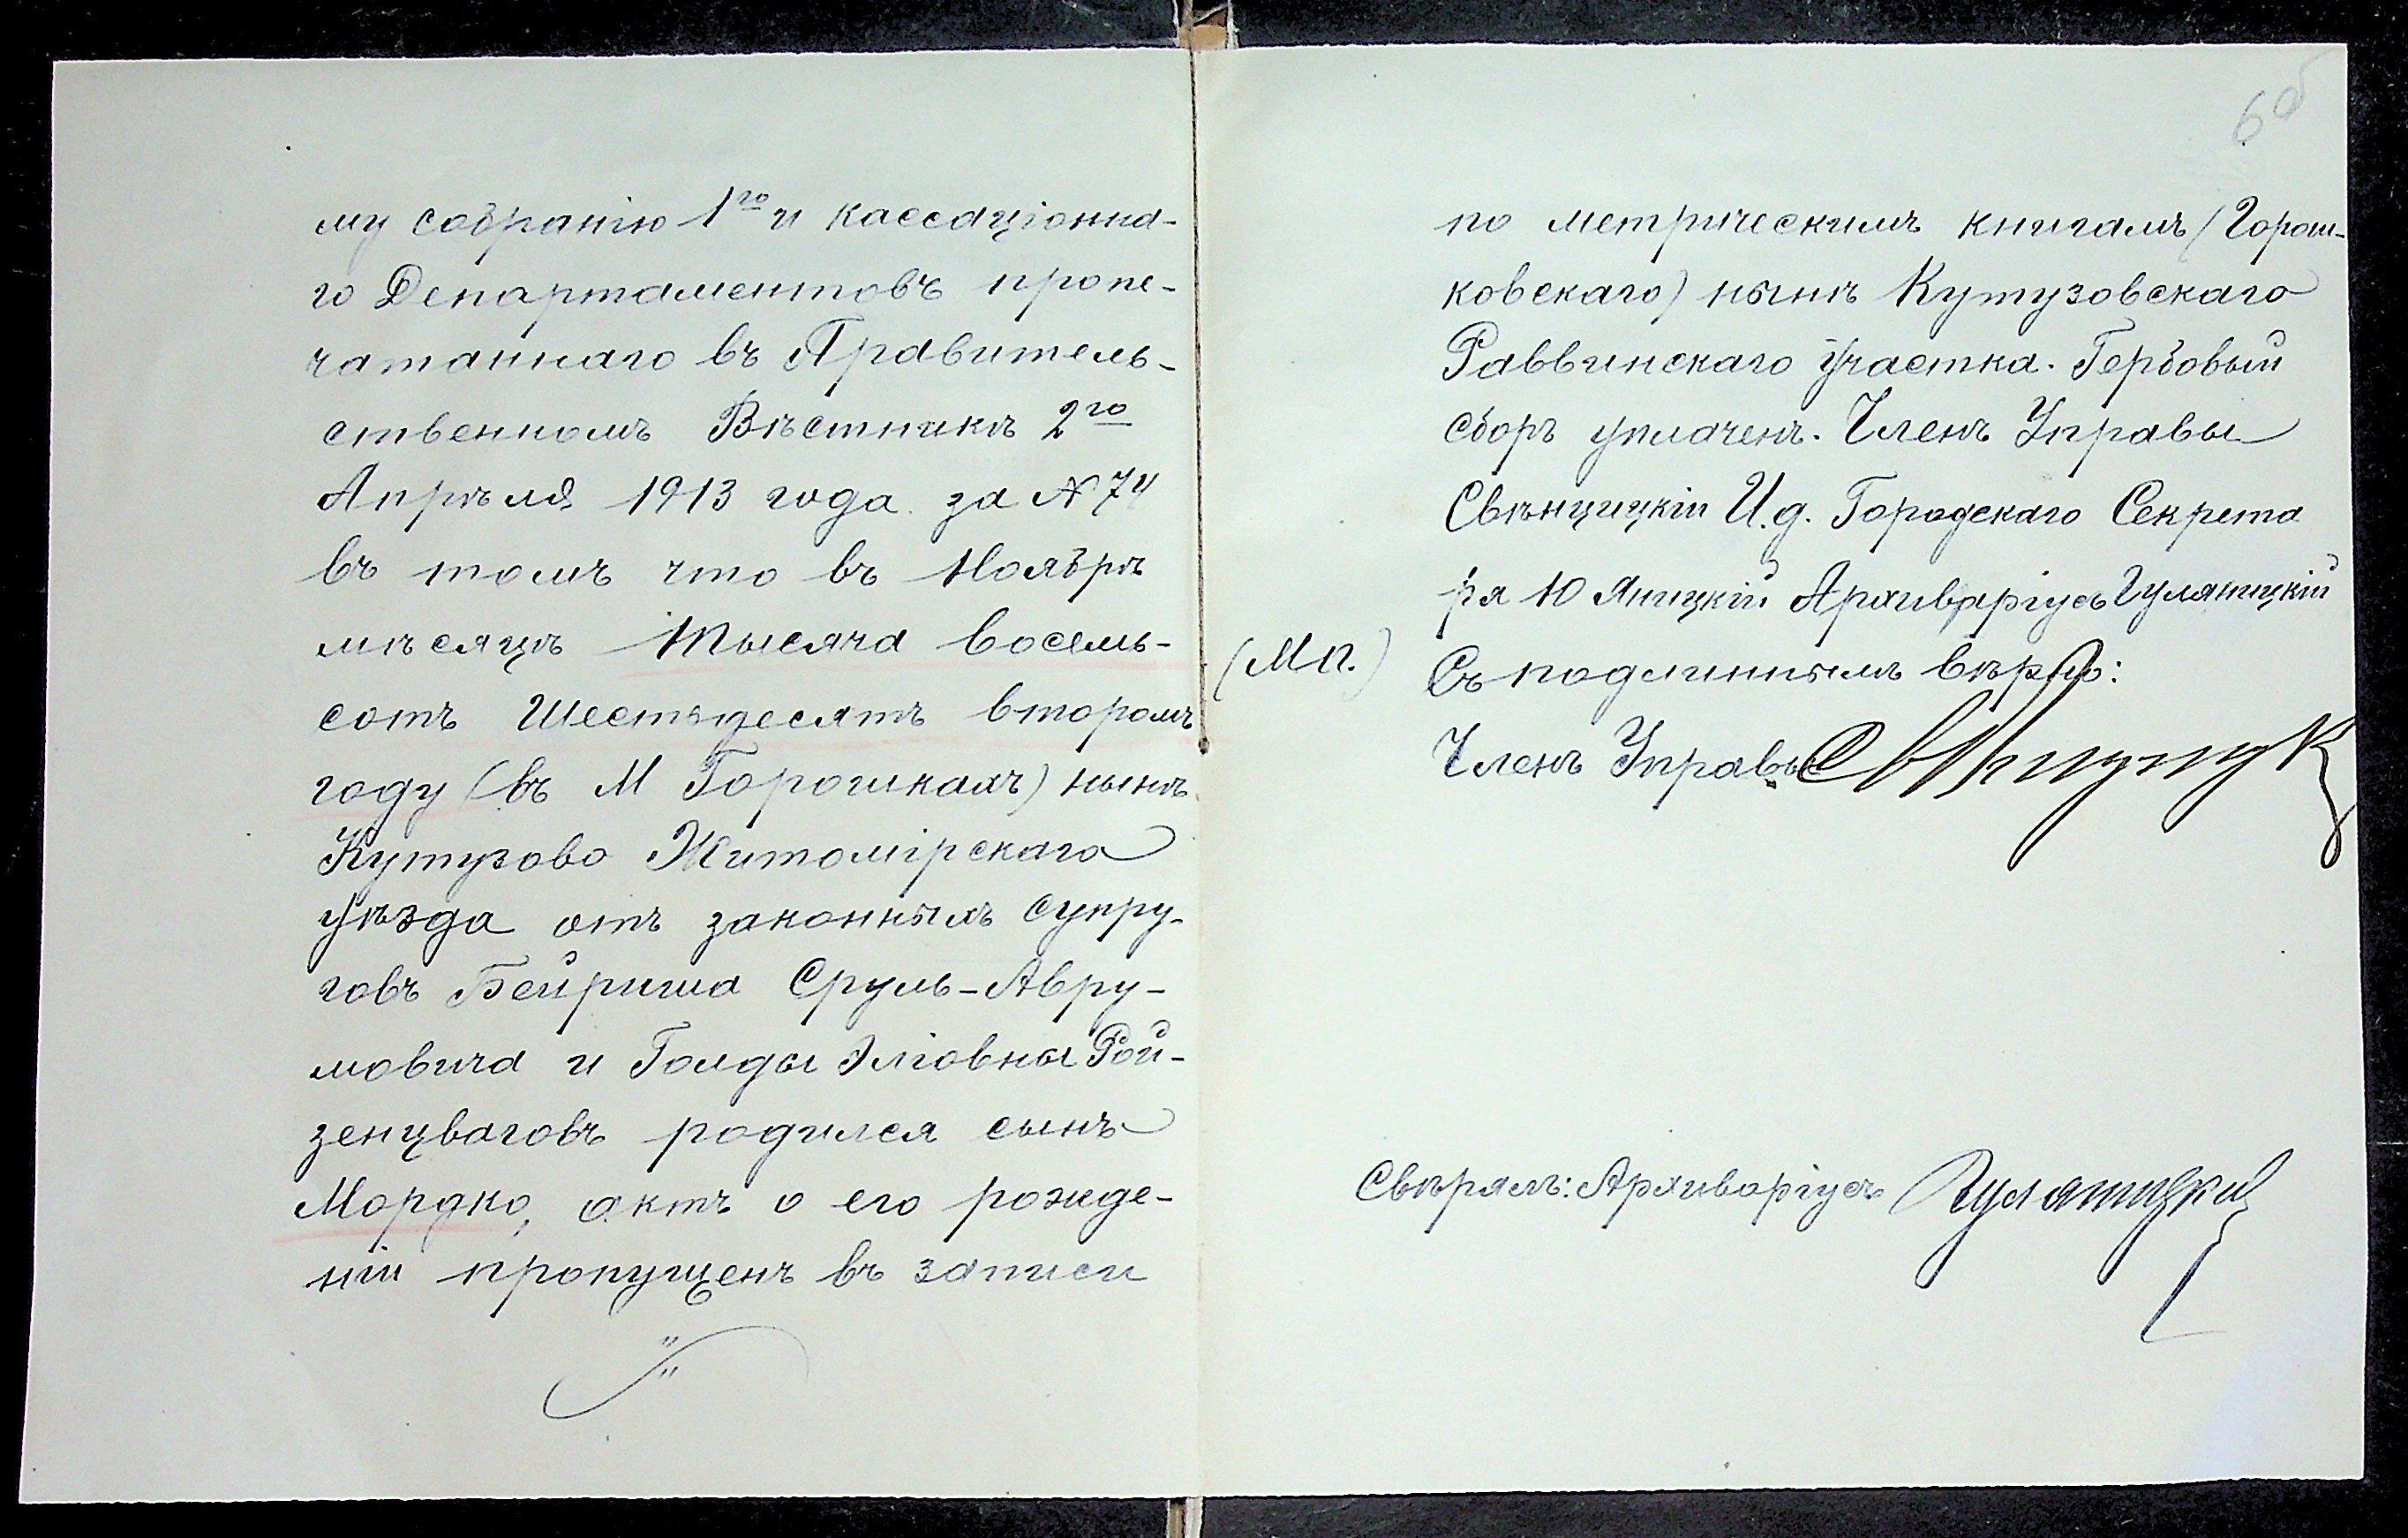 му собранію 1го и кассаціонна-
го Департаментовъ пропе-
чатаннаго въ Правитель-
ственномъ Вѣстникѣ 2го
Апрѣля 1913 года за № 74
въ томъ что въ Ноябрѣ
мѣсяцѣ тысяча восемь-
сотъ шестьдесятъ второмъ
году (въ М Горошкахъ) нынѣ
Кутузово Житомірскаго
уѣзда отъ законныхъ супру-
говъ Бейриша Сруль-Авру-
мовича и Голды Эліовны Рой-
зенцваговъ родился сынъ
Мордко, актъ о его рожде-
ніи пропущенъ въ записи
6 об
по метрическимъ книгамъ (Горош-
ковскаго) нынѣ Кутузовскаго
Раввинскаго Участка. Гербовый
сборъ уплаченъ. Членъ Управы
Свѣнцицкій И.д. Городскаго Секрета
ря Ю Яницкій Архиваріусъ Гуляницкій
(М п.) Съ подлиннымъ вѣрно:
Членъ Управы Свѣнцицк
Свѣрялъ: Архиваріусъ Гуляницкій